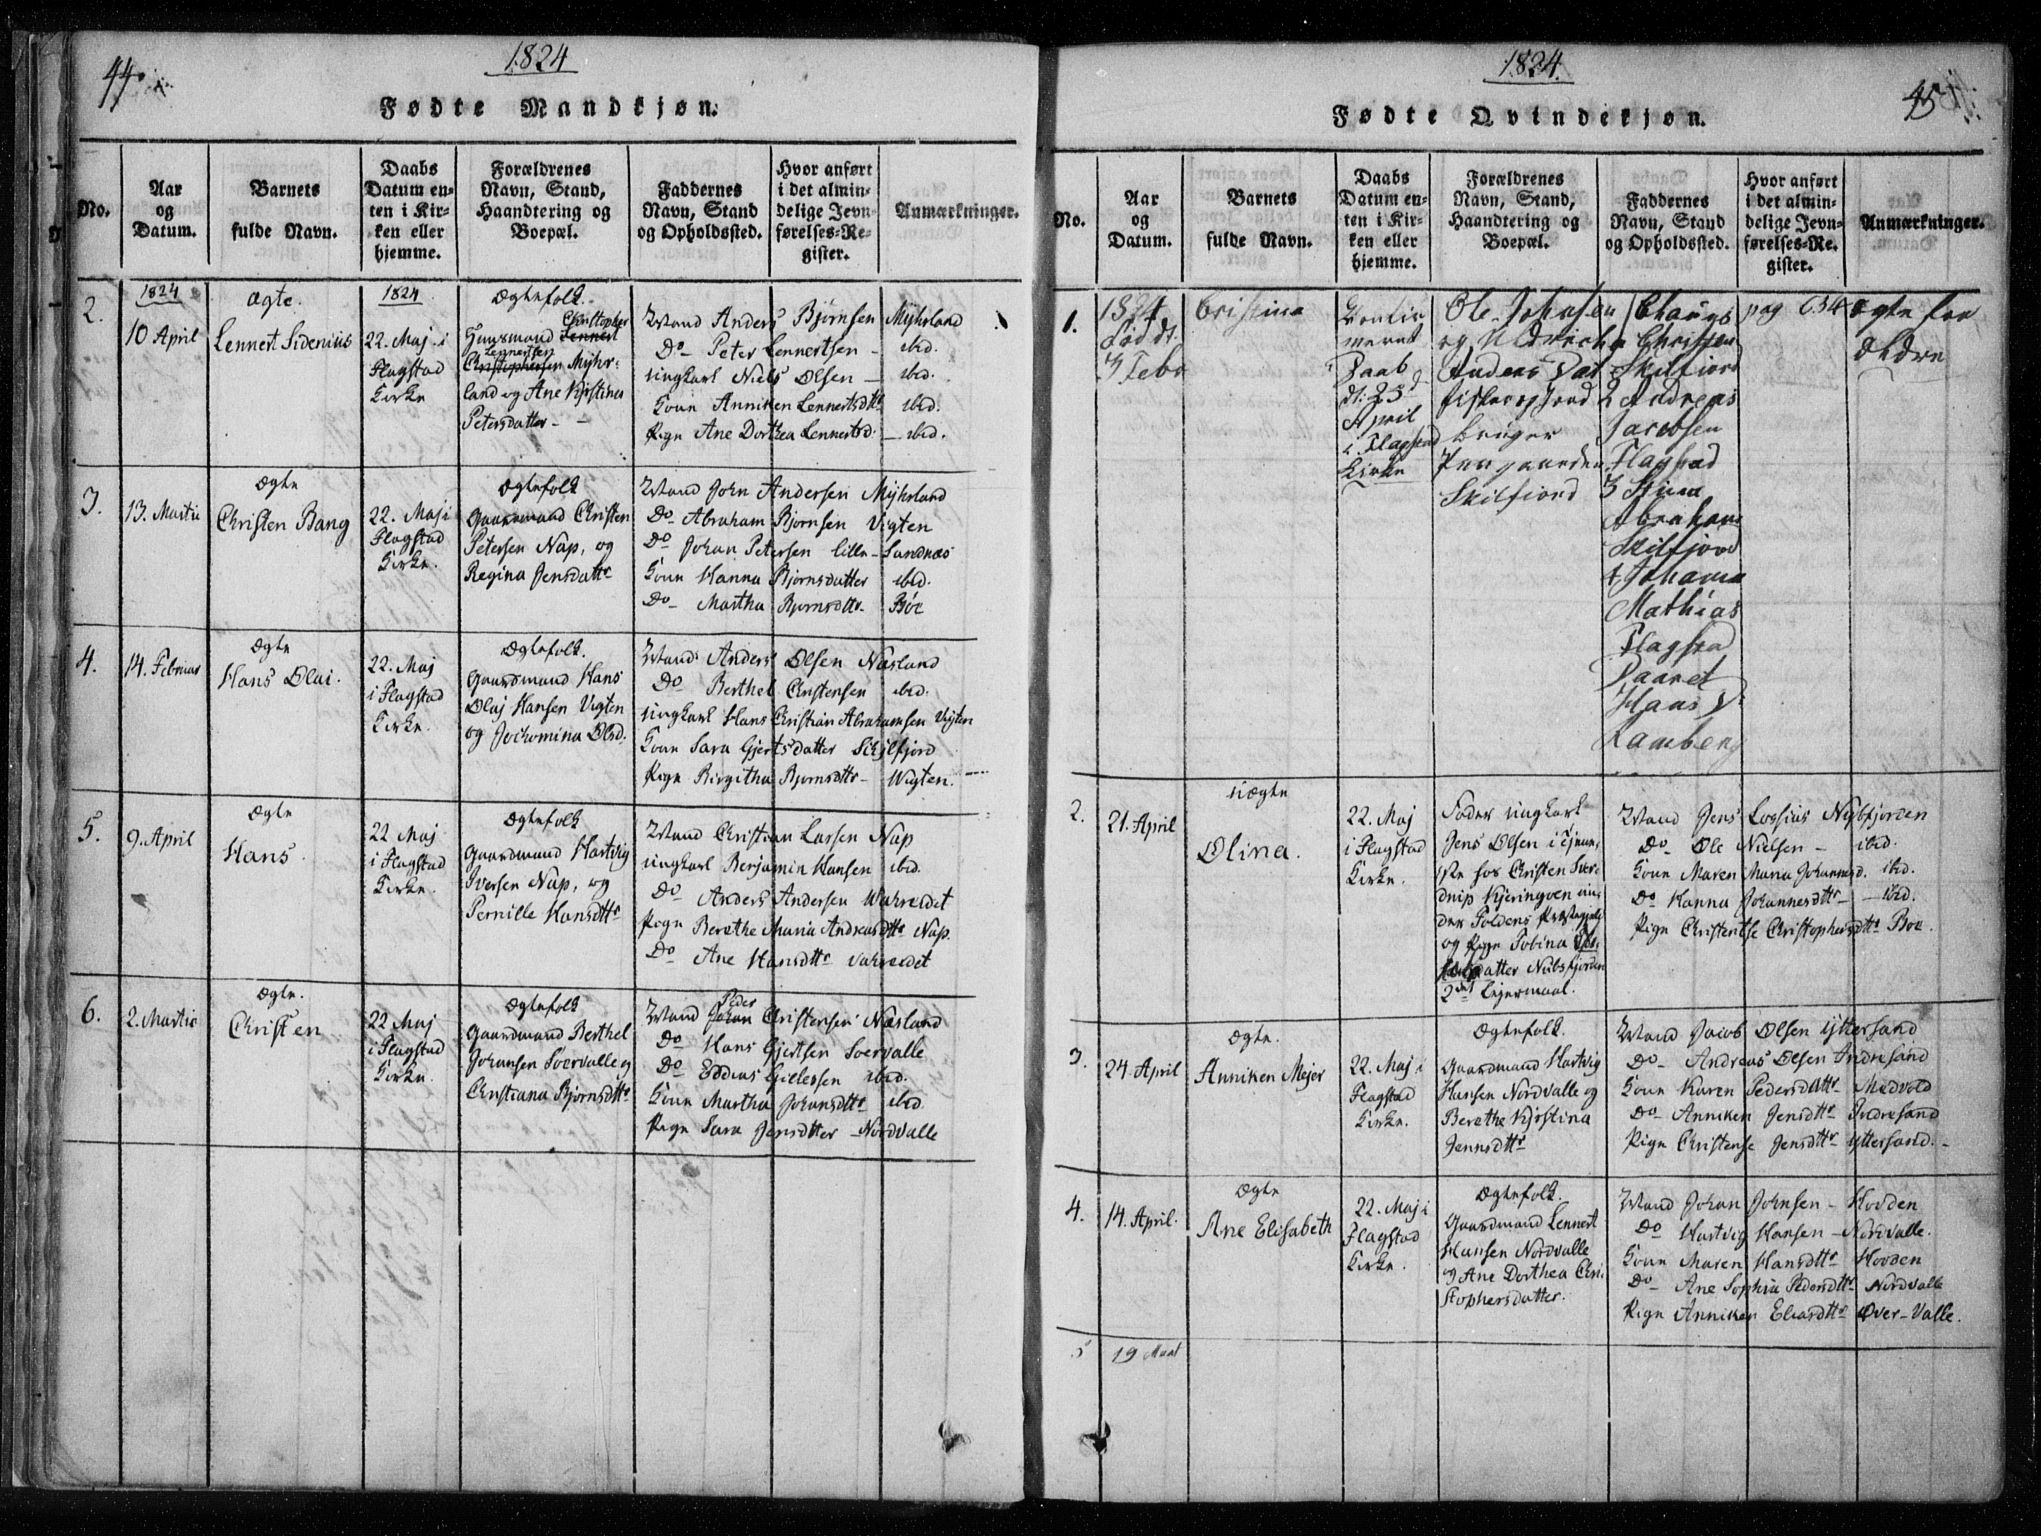 44
1824
Fødte Mandkjøn.
No.
Aar
og
Datum.
Barnets
fulde Navn.
Daabs
Datum en-
ten i Kir-
ken eller
hjemme.
Forældrenes
Navn, Stand,
Haandtering og
Boepæl.
Faddernes
Navn, Stand
og Opholdssted.
Hvor anført
i det almin-
delige Jevn-
førelses-Re-
gister.
Anmærkninger.
2.
1824
10 April
Ægte.
Lennert Sidenius
1824
22. Maj i
Flagstad
Kirke
Ægtefolk.
Huusmand Christopher
Lennertsen
Myhr-
land og Ane Kirstina
Petersdatter
Mand Anders Bjørnsen Myhrland
Do Peter Lennertsen - ibid.
Ungkarl Niels Olsen - ibid.
Kone Anniken Lennertsdtr ibid.
Pige Ane Dorthea Lennertsd. - ibid.
3.
13. Martii
Ægte
Christen Bang
22. Maj i
Flagstad
Kirke.
Ægtefolk
Gaardmand Christen
Petersen Nap, og
Regina Jensdattr
Mand John Andersen Myhrland
Do Abraham Bjørnsen Vigten
Do Johan Petersen Lille-Sandnæs
Kone Hanna Bjørnsdatter ibid.
Do Martha Bjørnsdttr Böe
4.
14. Februar
Ægte
Hans Olai.
22. Maj
i Flagstad
Kirke.
Ægtefolk.
Gaardmand Hans
Olaj Hansen Vigten
og Jochomina Olsd.
Mand Anders Olsen Næsland
Do Berthel Christensen ibid.
Ungkarl Hans Christian Abrahamsen Vigten
Kone Sara Gjertsdatter Schjelfjord
Pige Birgitha Bjørnsdttr Wigten.
5.
9. April
Ægte
Hans
22 Maj
i Flagstad
Kirke.
Ægtefolk
Gaardmand Hartvig
Iversen Nap, og
Pernille Hansdttr
Mand Christian Larsen Nap
Ungkarl Benjamin Hansen ibid.
Do Anders Andersen
Pige Berethe Maria Andreasdttr Nap.
Do Ane Hansdttr
6.
2. Martii
Ægte.
Christen
22 Maj
i Flagstad
Kirke.
Ægtefolk
Gaardmand Berthel
Johansen Soervalle og
Christiana Bjørnsdttr
Peder
Mand Johan Christensen Næsland
Do Hans Gjertsen Soervalle
Do Eddias ibid.
Kone Martha Johansdttr ibid.
Pige Sara Jensdtter Nordvalle
1824
45
Fødte Qvindekjøn.
No.
Aar
og
Datum.
Barnets
fulde Navn.
Daabs
Datum en-
ten i Kir-
ken eller
hjemme.
Forældrenes
Navn, Stand,
Haandtering og
Boepæl.
Faddernes
Navn, Stand
og Opholdssted.
Hvor anført
i det almin-
delige Jevn-
førelses-Re-
gister.
Anmærkninger.
1.
1824
Fød dt.
3 Febr
Cristina
Daab
dt. 25
April
i Flagstad
Kirke
Ole Johnsen
og
Anders Dat
Bruger
Paa gaarden
Skilfiord
Christen
Skilfiord
2 Andreas
Jacobsen
Flagstad
3 Stina
Abraham
Skilfjord
4 Johanna
Mathias
Flagstad
Hans
Ramberg
pag 634
Ægte for
ældre
2.
21. April
Uægte
Olina.
22. Maj
i Flagstad
Kirke.
Fader Ungkarl
Jens Olsen i Tjene-
ste hos Christen Sver-
drup Kjeringøen un-
der Foldens
og Pige Tobina
datter Nubsfjorden
2det Lejermaal.
Mand Jens Lossius Nubfjorden
Do Ole Nielsen - ibid.
Kone Maren Maria Johannesd. ibid.
Do Hanna Johannesdttr - ibid.
Pige Christentse Christophersdttr Böe.
3.
24. April
Ægte.
Anniken Mejer
22. Maj i
Flagstad
Kirke.
Ægtefolk.
Gaardmand Hartvig
Hansen Nordvalle og
Berethe Kirstina
Jensdttr
Mand Jacob Olsen Yttersand
Do Andreas Olsen Indresand
Kone Karen Pedersdattr Medvold
Do Anniken Jensdttr Indresand
Pige Christense Jensdttr Yttersand.
4.
14. April.
Ægte
Ane Elisabeth
22. Maj i
Flagstad
Kirke.
Ægtefolk.
Gaardmand Lennert
Hansen Nordvalle
og Ane Dorthea Chri-
stophersdatter.
Mand Johan Johnsen - Hovden
Do Hartvig Hansen - Nordvalle.
Kone Maren Hansdttr Hovden
Do Ane Sophia Pedersdttr Nordvalle
Pige Anniken Eliasdttr Øver-Valle.
5
19 Mart